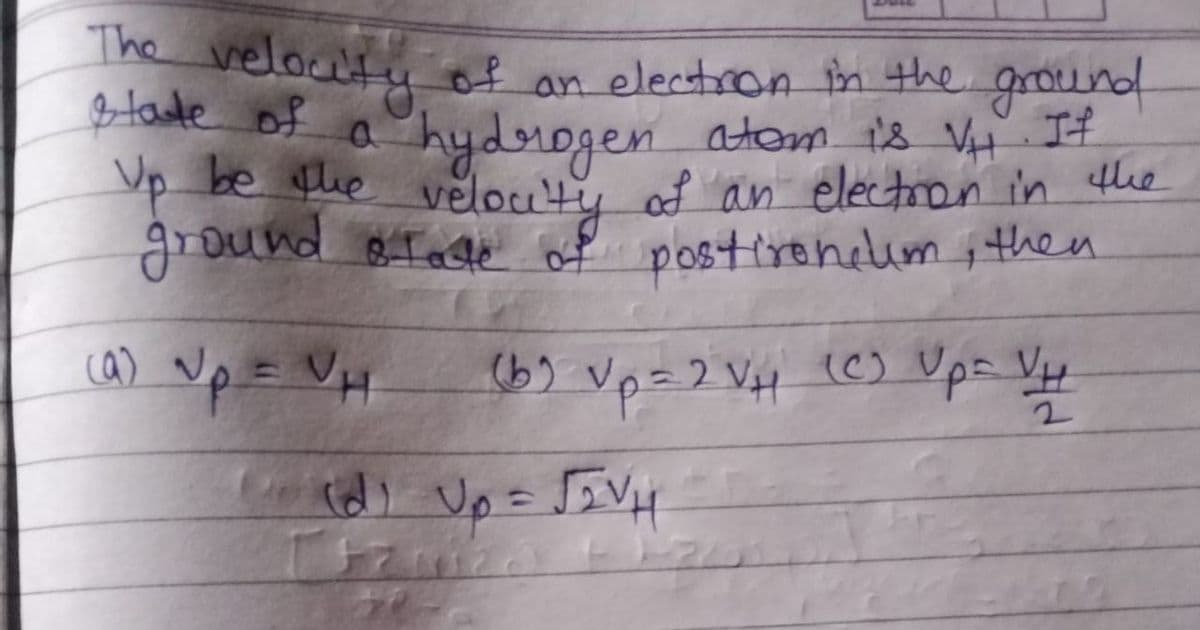 The velocity of an electron in the ground
state of a hydrogen atom is V_H. If
V_p be the velocity of an electron in the
ground state of postironium, then
(a) V_p = V_H (b) V_p = 2 V_H (c) V_p = V_H/2
(d) V_p = √2 V_H